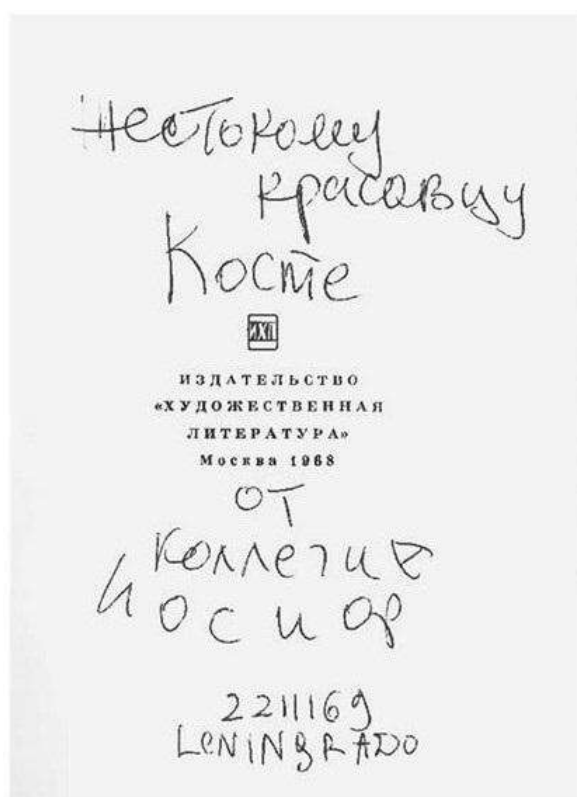 Жестокому
красавцу
Косте
ИХЛ
ИЗДАТЕЛЬСТВО
«ХУДОЖЕСТВЕННАЯ
ЛИТЕРАТУРА»
Москва 1968
от
коллеги
Иосиф
22II169
LENINGRADO